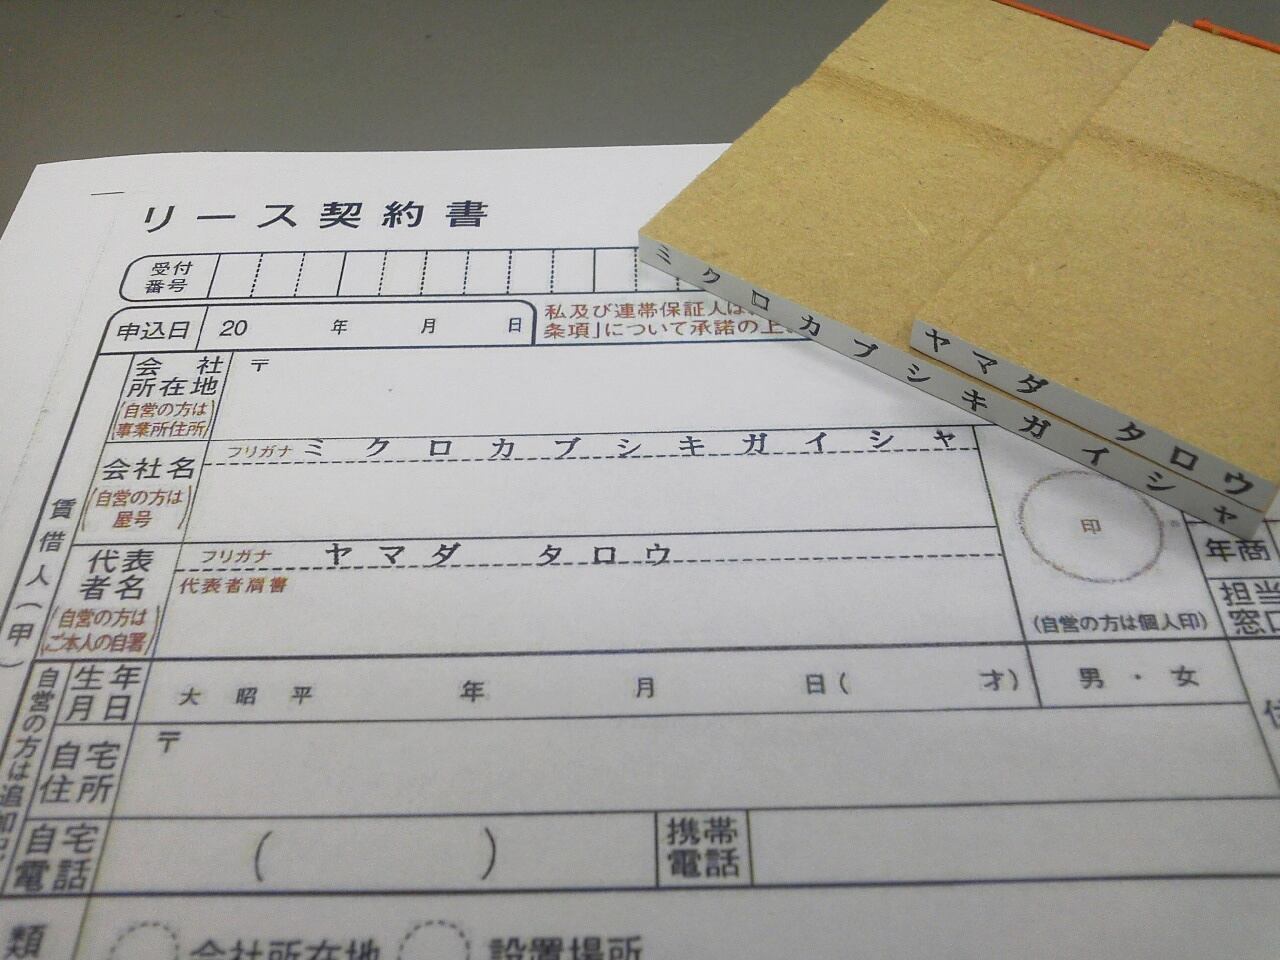 リース契約書
受付
番号
申込日 20 年 月 日
私及び連帯保証人は、
条項」について承諾の上
会社
所在地
(自営の方は
事業所住所)
〒
会社名
(自営の方は
屋号)
フリガナ ミクロカブシキガイシャ
印
(自営の方は個人印)
代表
者名
(自営の方は
ご本人の自署)
フリガナ ヤマダ タロウ
代表者肩書
賃借人(甲)
年商
担当
窓口
自営の方は追加記
生年
月日
大 昭 平 年 月 日( 才)
男・女
自宅
住所
〒
自宅
電話
( )
携帯
電話
類
会社所在地 設置場所
ミクロカブシキガイシャ
ヤマダ タロウ